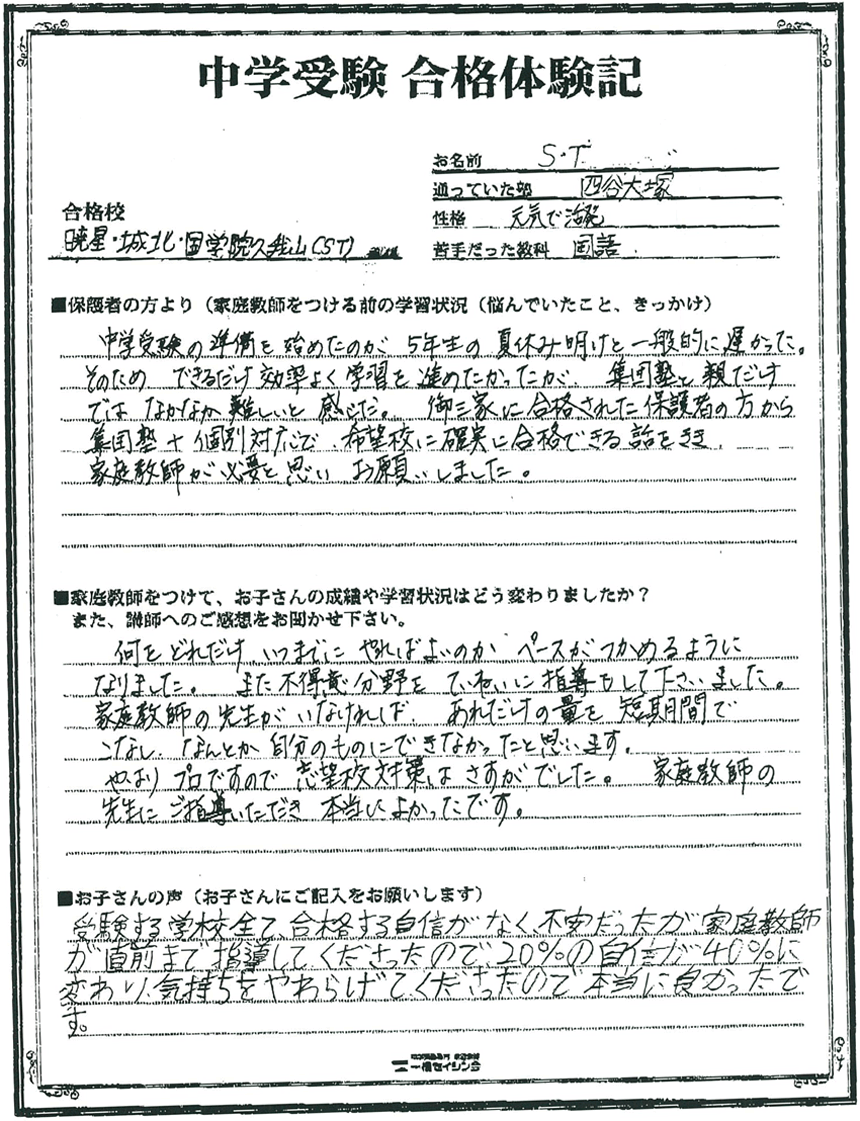 中学受験 合格体験記
お名前 S・T
通っていた塾 四谷大塚
性格 元気で活発
苦手だった教科 国語
合格校
暁星・城北・国学院久我山(ST)
■保護者の方より（家庭教師をつける前の学習状況（悩んでいたこと、きっかけ）
中学受験の準備を始めたのが 5年生の夏休み明けと一般的に遅かった。
そのため できるだけ効率よく学習を進めたかったが、集団塾と親だけ
では なかなか難しいと感じた。 御三家に合格された保護者の方から
集団塾＋個別対応で、希望校に確実に合格できる話をきき、
家庭教師が必要と思い お願いしました。
■家庭教師をつけて、お子さんの成績や学習状況はどう変わりましたか？
また、講師へのご感想をお聞かせ下さい。
何を どれだけ いつまでに やればよいのか ペースがつかめるように
なりました。 また不得意分野を ていねいに指導もして下さいました。
家庭教師の先生が いなければ あれだけの量を 短期間で
こなし、なんとか 自分のものにできなかったと思います。
やはり プロですので 志望校対策は さすがでした。 家庭教師の
先生に ご指導いただき 本当によかったです。
■お子さんの声（お子さんにご記入をお願いします）
受験する学校全て、合格する自信がなく、不安だったが家庭教師
が直前まで指導してくださったので、20%の自信が40%に
変わり、気持ちをやわらげてくださったので本当に良かったで
す。
一橋セイシン会